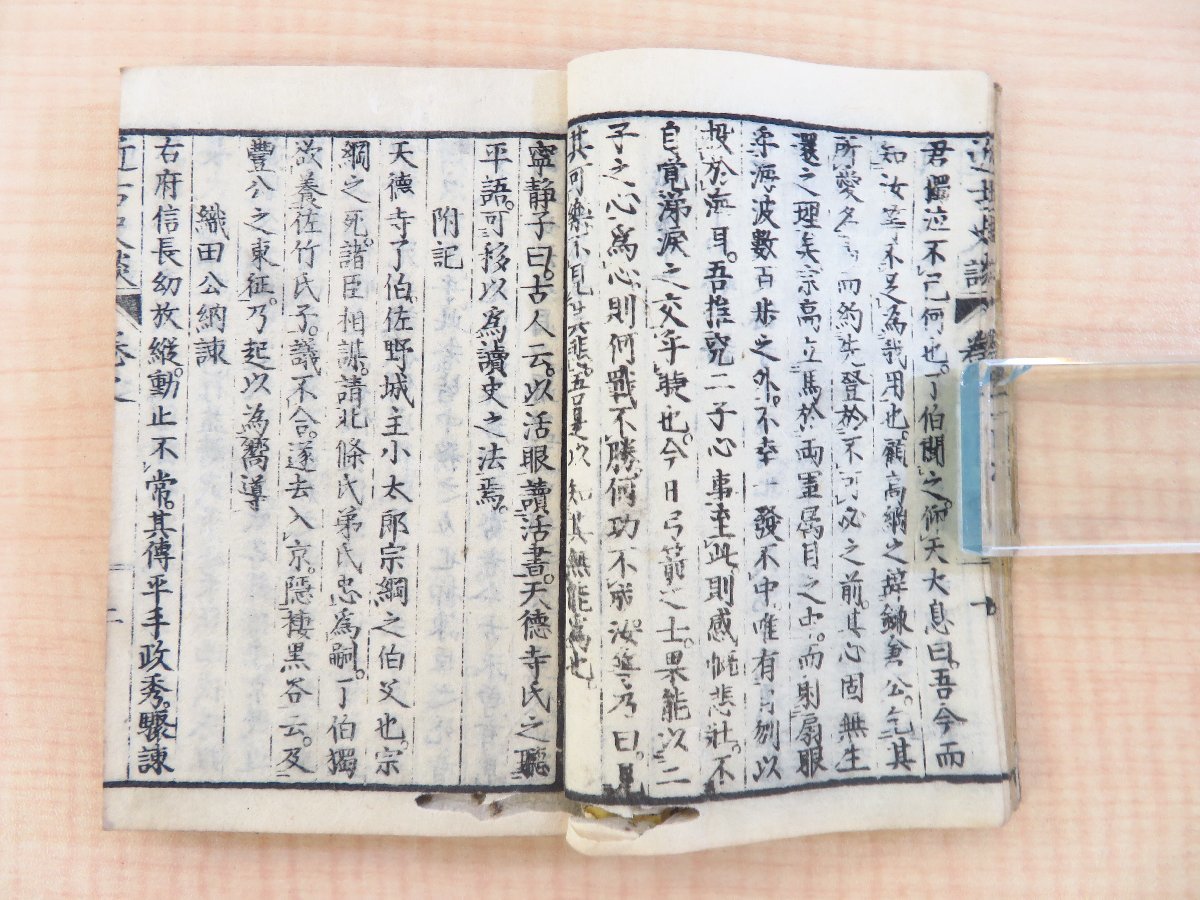 君還泣不已何也。了伯聞之。仰天大息曰。吾今而
知汝等不足為我用也。顧高綱之辭鎌倉公。乞其
所愛名馬。而約先登於不可必之前。其心固無生
還之理矣。宗高立馬於兩軍屬目之中。而射扇眼
乎海波數百步之外。不幸一發不中。唯有自刎以
投於海耳。吾推究二子心事至此。則感慨悲壯。不
自覺涕淚之交乎睫也。今日弓箭之士。果能以二
子之心為心。則何戰不勝。何功不成。汝等乃曰。見
其可樂。不見其可悲。吾是以知其無能為也。
寧靜子曰。古人云。以活眼讀活書。天德寺氏之聽
平語。可移以為讀史之法焉。
附記
天德寺了伯。佐野城主小太郎宗綱之伯父也。宗
綱之死。諸臣相謀。請北條氏弟氏忠為嗣。了伯獨
欲養佐竹氏子。議不合。遂去入京。隱棲黑谷云。及
豐公之東征。乃起以為嚮導
織田公納諫
右府信長幼放縱。動止不常。其傅平手政秀。驟諫
近古史談
卷之